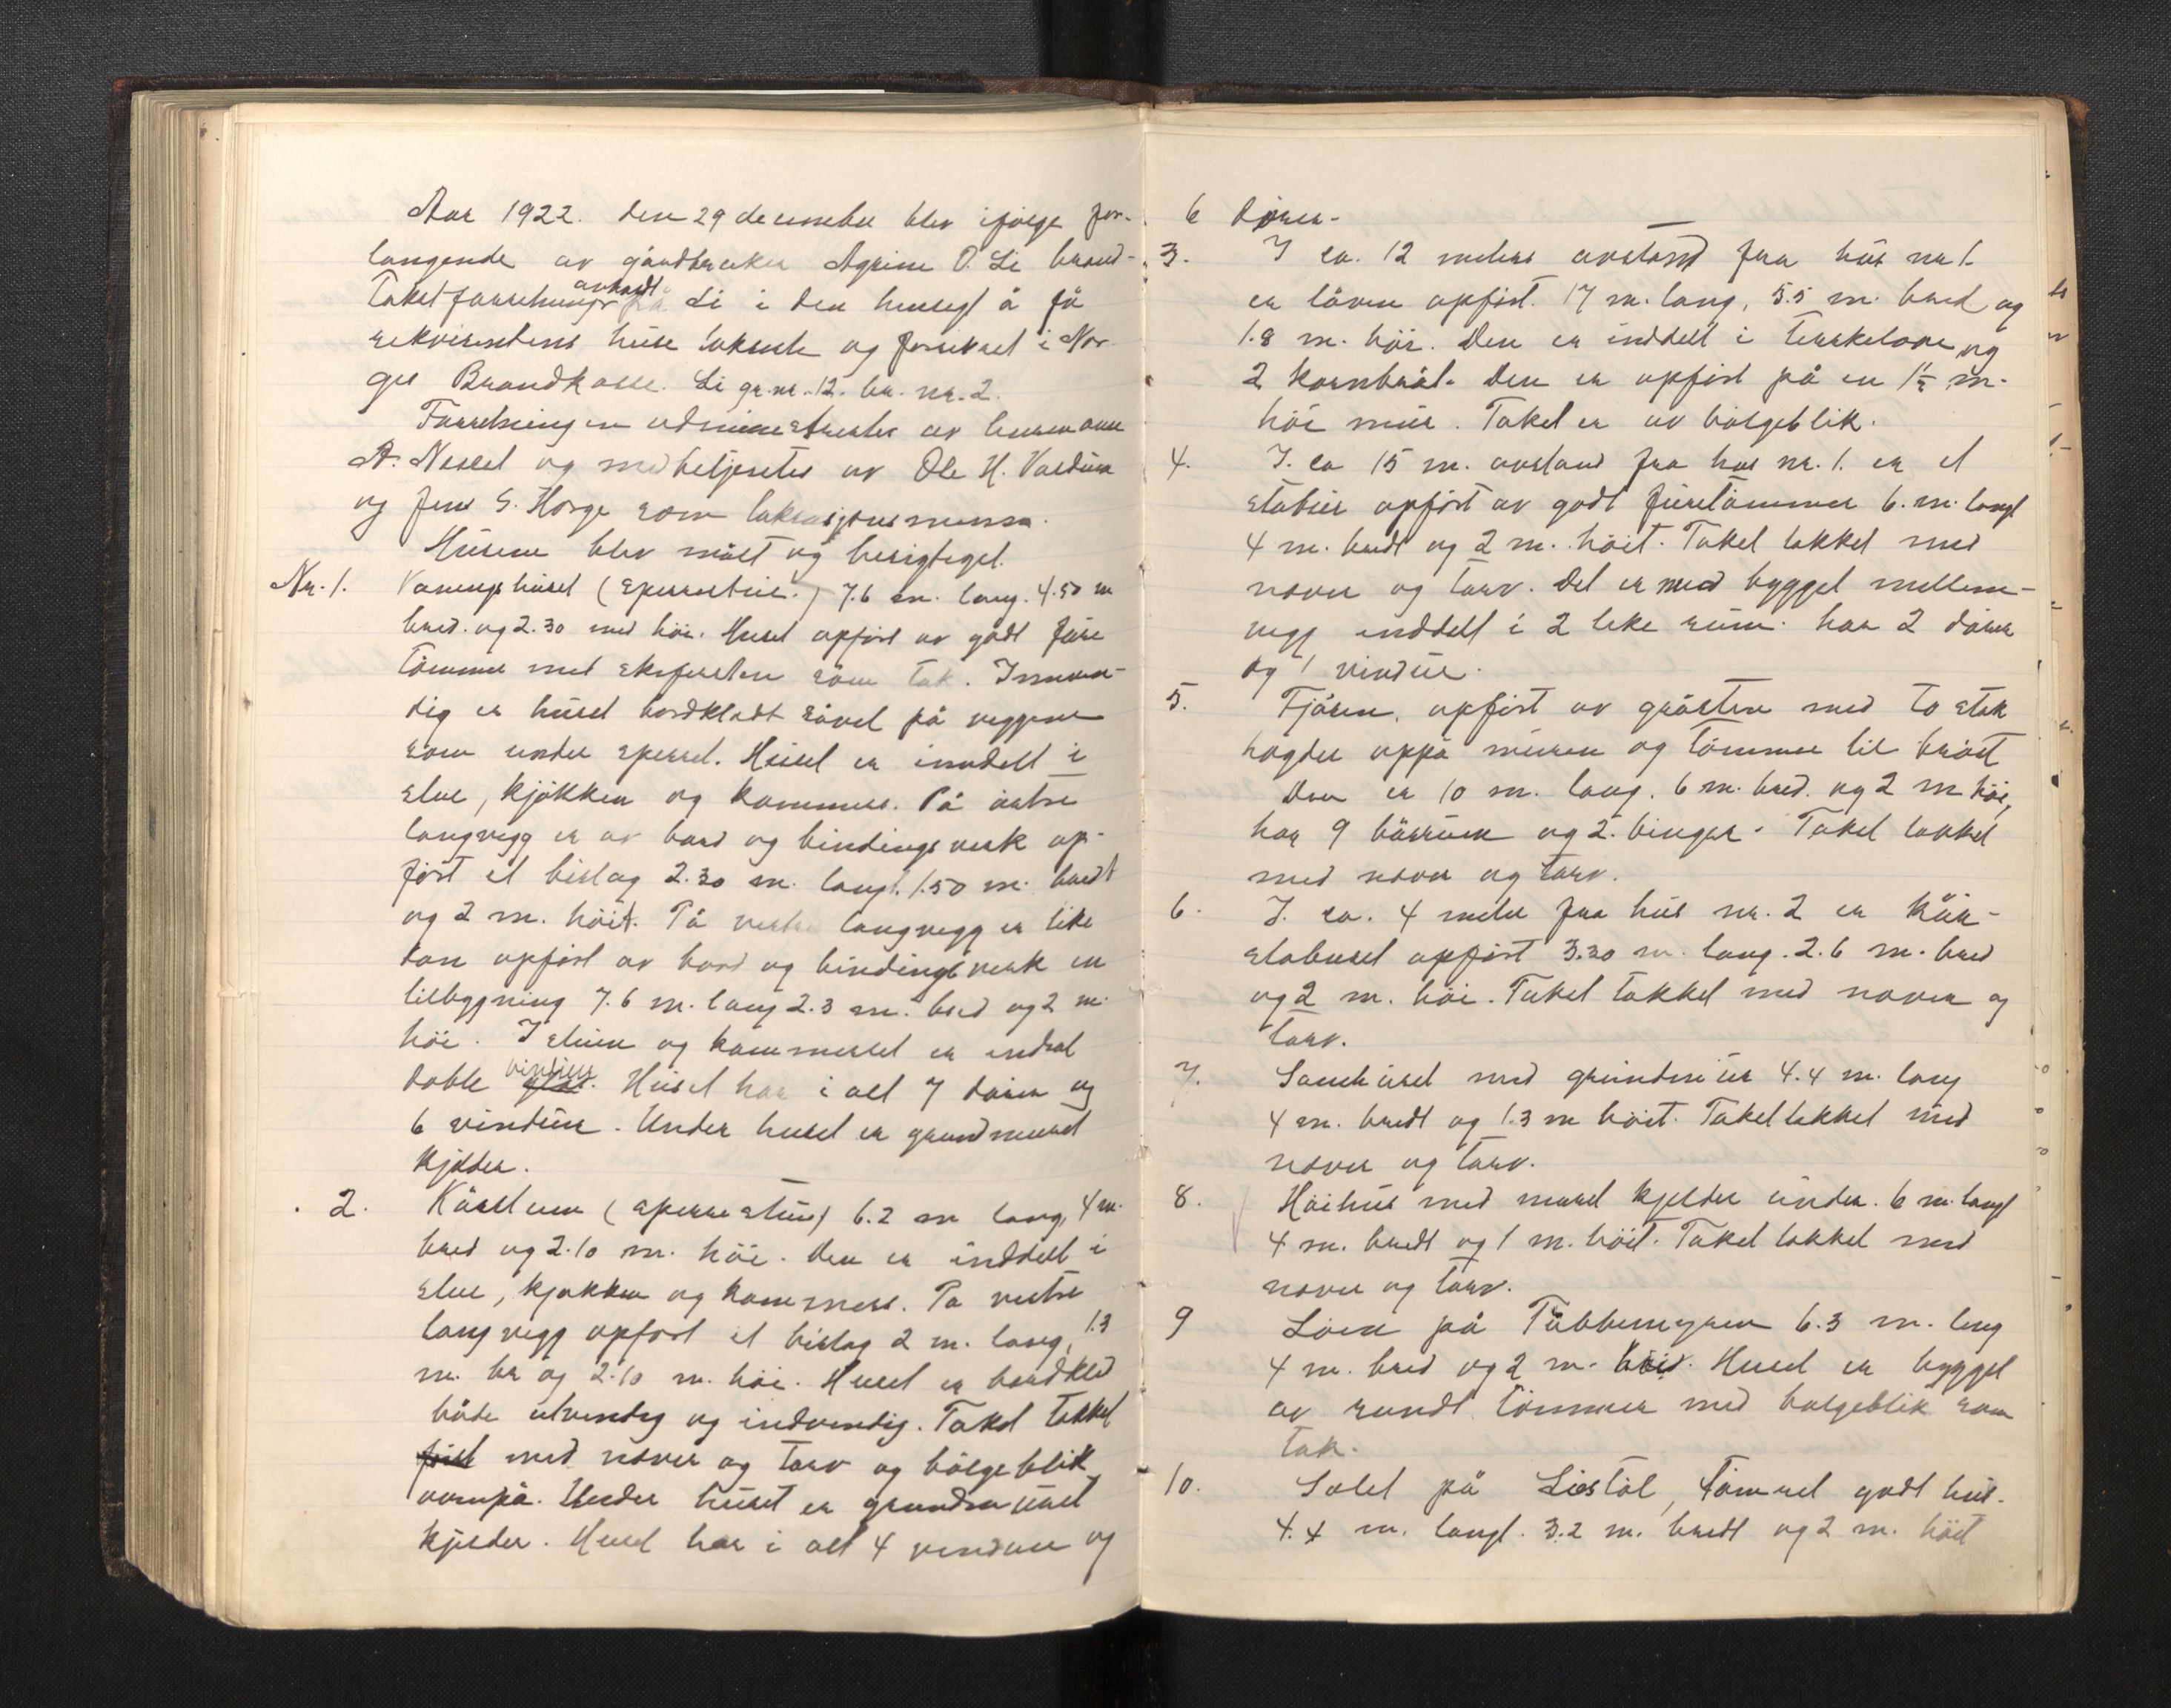 Aar 1922. den 29 december blev ifølge for-
langende av gårdbruker Agrim O. Li brand-
takstforretning avholdt på Li i den hensigt å få
rekvirentens huse taksert og forsikret i Nor-
ges Brandkasse. Li gr.nr. 12. br. nr. 2.
Forretningen administrertes av lensmann
A. Nessel og medbetjentes av Ole H.
og Jens S. Horge som taksasjonsmenn.
Husene blev målt og besigtiget.
Nr. 1. Vaningshuset (sperrestue.) 7.6 m. lang. 4.50 m
bred. og 2.30 med höi. Huset opfört av godt furu
tömmer med skifersten som tak. Innven-
dig er huset bordklædt såvel på veggene
som under sperret. Huset er inndelt i
stue, kjökken og kammers. På östre
langvegg er av bord og bindingsverk op-
fört et bislag 2.30 m. langt. 1.50 m. bredt
og 2 m. höit. På vestre langvegg er like
dan opfört av bord og bindingsverk en
tilbygning 7.6 m. lang 2.3 m. bred og 2 m.
höi. I stuen og kammerset er indsat
doble glas. vinduer Huset har i alt 7 dörer og
6 vinduer. Under huset er grundmuret
kjelder.
2. Kårstuen (sperrestue) 6.2 m lang, 4 m.
bred og 2.10 m. höi. Den er inddelt i
stue, kjøkken og kammers. Pa vestre
langvegg opfört et bislag 2 m. lang, 1.3
m. br og 2.10 m. höi. Huset er bordkled
både utvendig og indvendig. Taket tekket
med never og torv og bölgeblik
ovenpå. Under huset er grundmuret
kjelder. Huset har i alt 4 vinduer og
6 dörer.
3. I ca. 12 meters avstand fra hus nr 1.
er löven opfört. 17 m. lang, 5.5 m. bred og
1.8 m. höi. Den er inddelt i terskelove og
2 kornbrål. Den er opfört på en 1½ m.
höi mur. Taket er av bölgeblik.
4. I. ca 15 m. avstand fra hus nr. 1. er et
stabur opfört av godt furetömmer 6. m. langt
4 m. bredt og 2 m. höit. Taket tekket med
never og torv. Det er med bygget mellem-
vegg inddelt i 2 like rum. har 2 dörer
og 1 vindue.
5. Fjösen, opfört av gråsten med to stok
högder oppå muren og tömmer til bröst
Den er 10 m. lang. 6 m. bred. og 2 m höi,
har 9 båsrum og 2. binger. Taket tekket
med never og torv.
6. I. ca. 4 meter fra hus nr. 2 er kår-
staburet opfört 3.30 m. lang. 2.6 m. bred
og 2 m. höi. Taket tekket med never og
torv.
7. Sauehuset med grundmur 4.4 m. lang
4 m. bredt og 1.3 m höit. Taket tekket med
never og torv.
8. Höihus med muret kjelder under. 6 m. langt
4 m. bredt og 1 m. höit. Taket tekket med
never og torv.
9 Löen på Tübbemyren 6.3 m. lang
4 m. bred og 2 m. höi. Huset er bygget
av rundt tömmer med bølgeblik som
tak.
10. Selet på Listöl, Tömret godt hus.
4.4 m. langt. 3.2 m. bredt og 2 m. höit